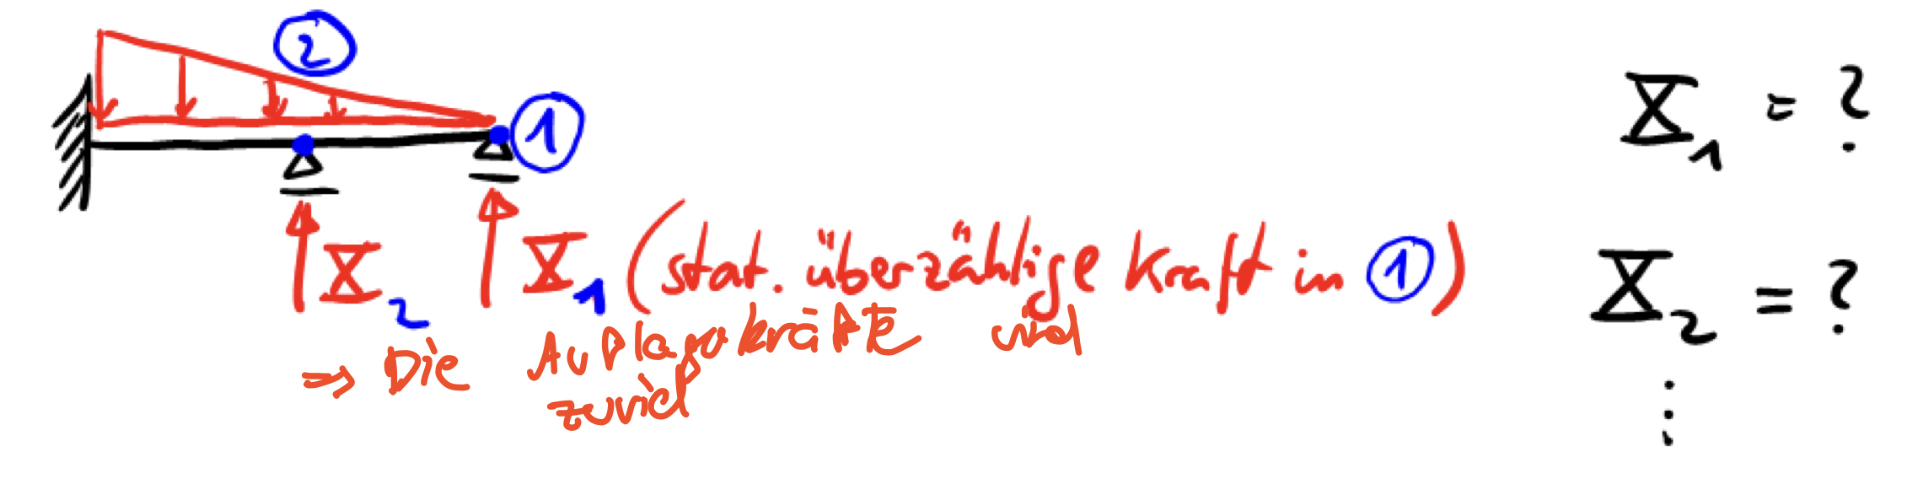 2
1
X₁ = ?
X₂ X₁ (stat. überzählige Kraft in 1)
X₂ = ?
⇒ Die Auflagekräfte
zuviel
⋮